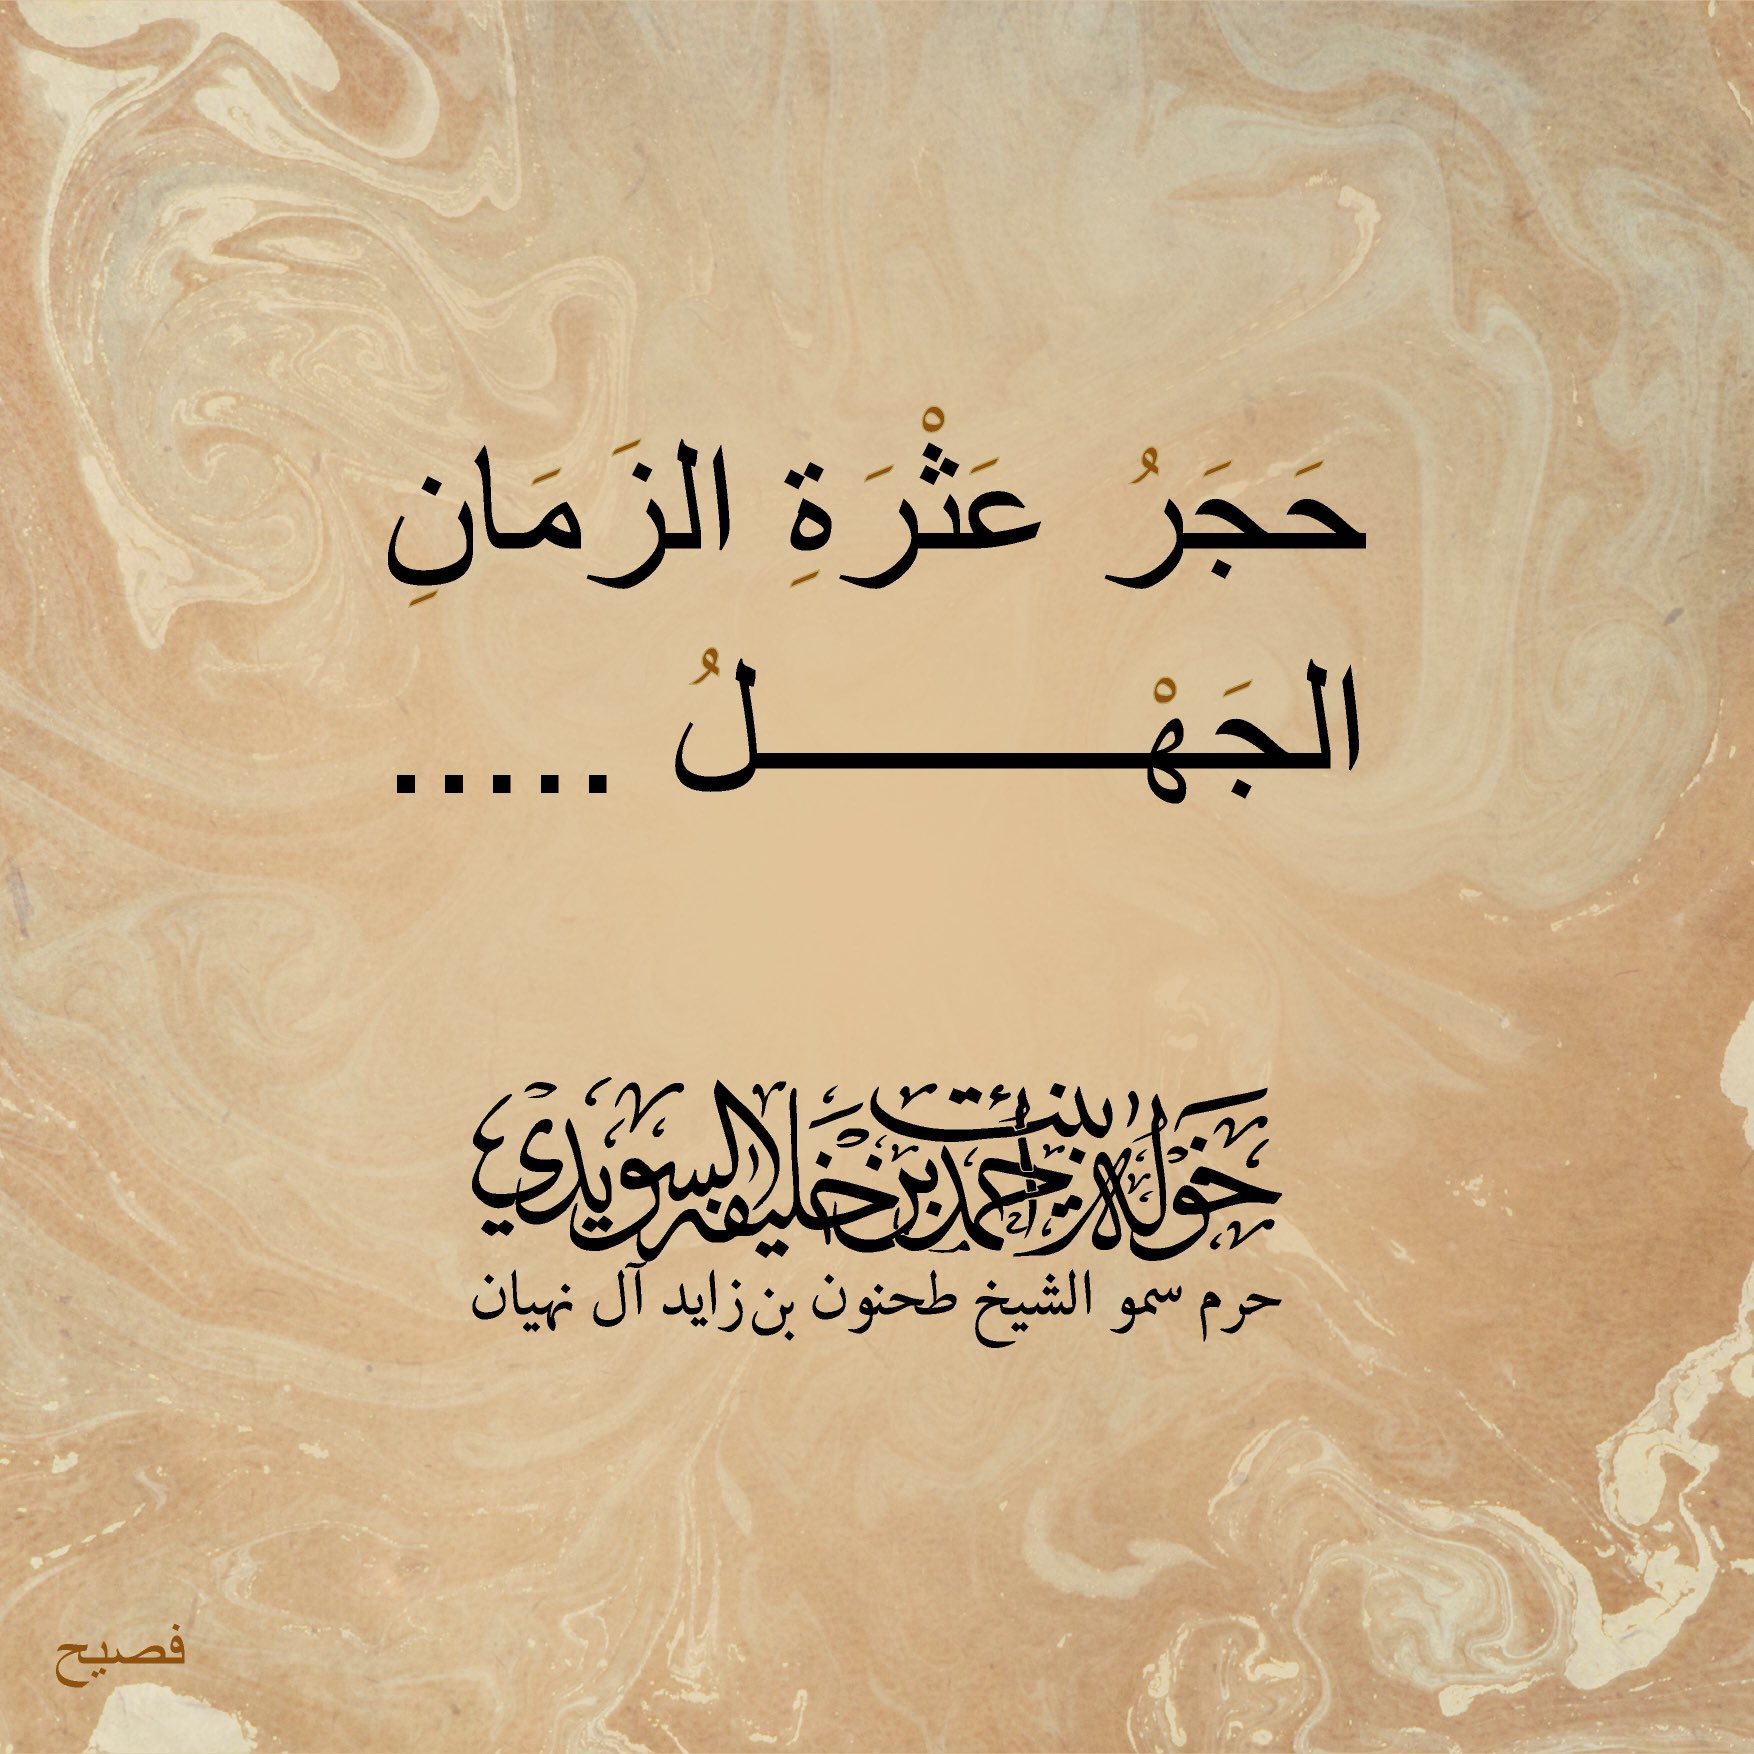 حَجَرُ عَثْرَةِ الزَمَانِ
الجَهْـــــــــــــلُ .....
خولة بنت أحمد بن خليفة السويدي
حرم سمو الشيخ طحنون بن زايد آل نهيان
فصيح